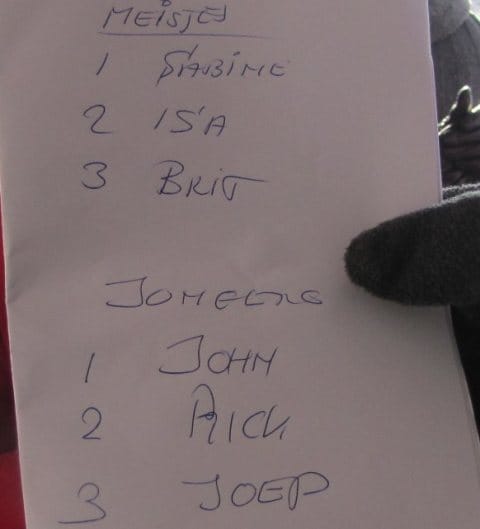 MEISJES
1 SABINE
2 ISA
3 BRIT
JONGENS
1 JOHN
2 RICK
3 JOEP